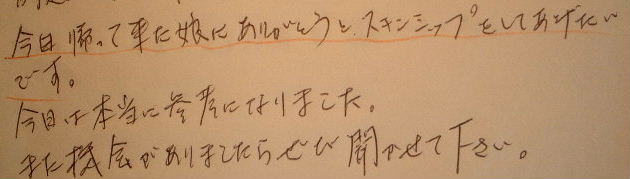 今日帰って来た娘にありがとうと、スキンシップをしてあげたい
です。
今日は本当に参考になりました。
また機会がありましたらぜひ聞かせて下さい。